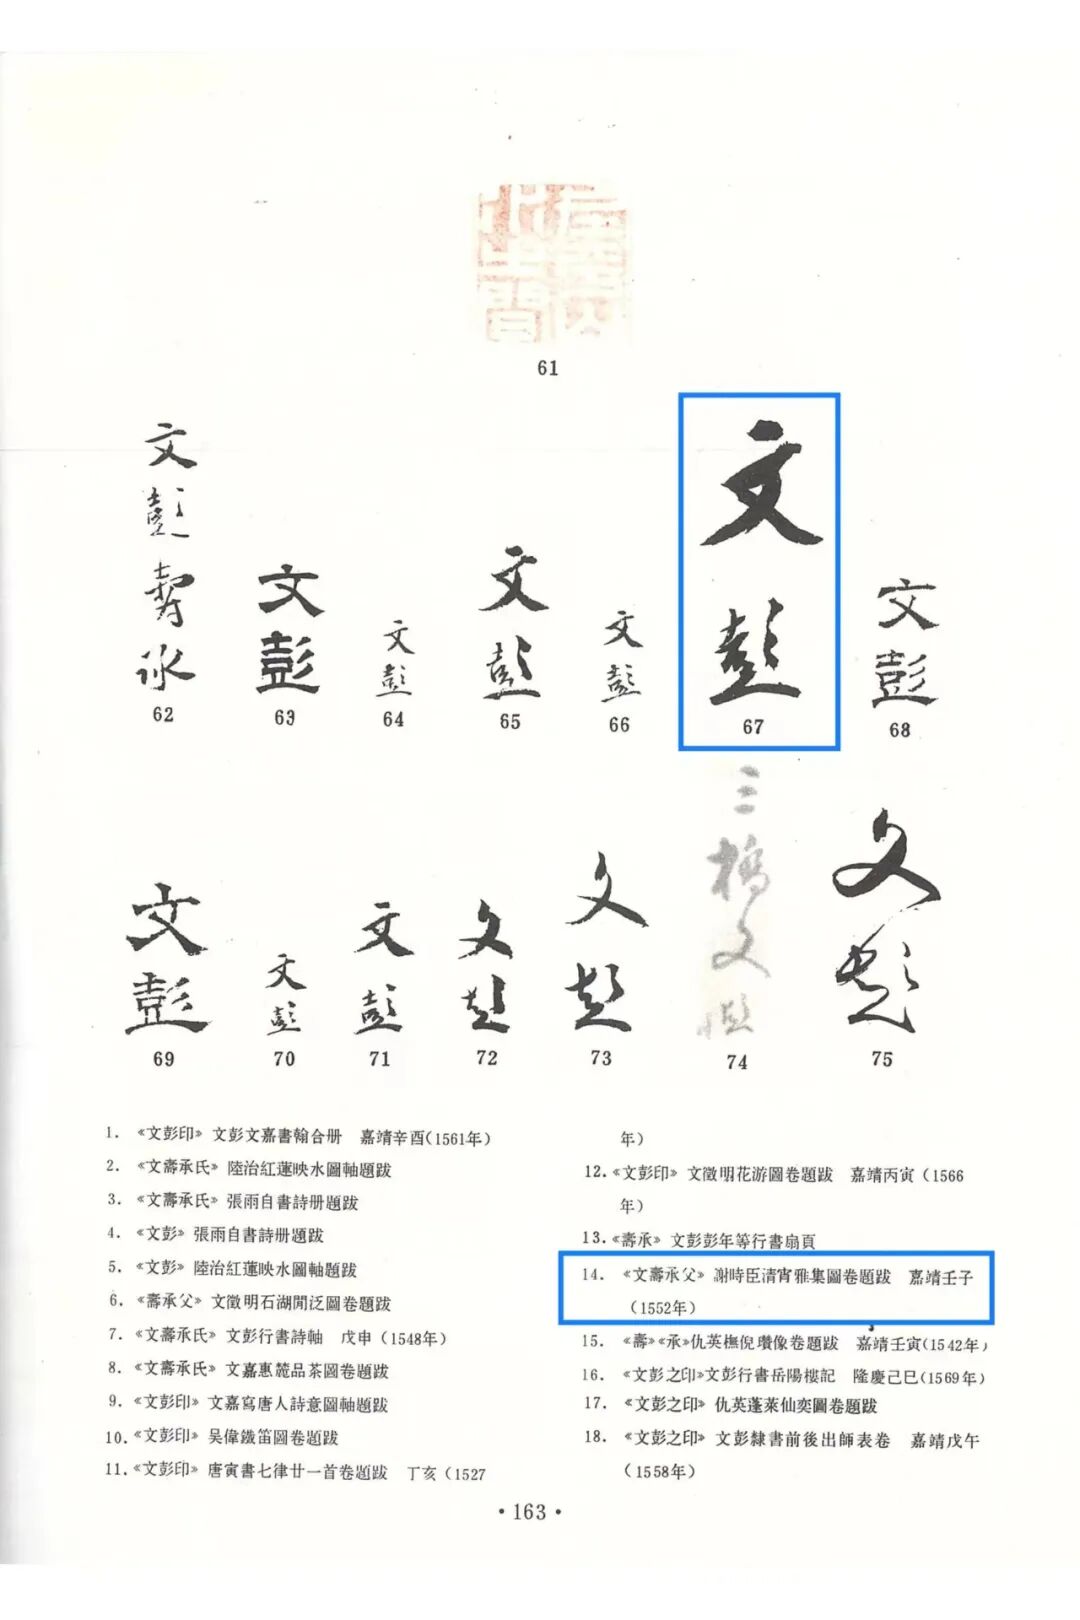 61
文
彭
壽
承
62
文
彭
63
文
彭
64
文
彭
65
文
彭
66
文
彭
67
文
彭
68
文
彭
69
文
彭
70
文
彭
71
文
彭
72
文
彭
73
三
橋
文
彭
74
文
彭
75
1. 《文彭印》 文彭文嘉書翰合册 嘉靖辛酉(1561年)
2. 《文壽承氏》 陸治紅蓮映水圖軸題跋
3. 《文壽承氏》 張雨自書詩册題跋
4. 《文彭》 張雨自書詩册題跋
5. 《文彭》 陸治紅蓮映水圖軸題跋
6. 《壽承父》 文徵明石湖閒泛圖卷題跋
7. 《文壽承氏》 文彭行書詩軸 戊申(1548年)
8. 《文壽承氏》 文嘉惠麓品茶圖卷題跋
9. 《文彭印》 文嘉寫唐人詩意圖軸題跋
10. 《文彭印》 吴偉鐵笛圖卷題跋
11. 《文彭印》 唐寅書七律廿一首卷題跋 丁亥(1527
年)
12. 《文彭印》 文徵明花游圖卷題跋 嘉靖丙寅(1566
年)
13. 《壽承》 文彭彭年等行書扇頁
14. 《文壽承父》 謝時臣清宵雅集圖卷題跋 嘉靖壬子
(1552年)
15. 《壽》《承》仇英橅倪瓚像卷題跋 嘉靖壬寅(1542年)
16. 《文彭之印》文彭行書岳陽樓記 隆慶己巳(1569年)
17. 《文彭之印》 仇英蓬萊仙奕圖卷題跋
18. 《文彭之印》 文彭隸書前後出師表卷 嘉靖戊午
(1558年)
• 163 •